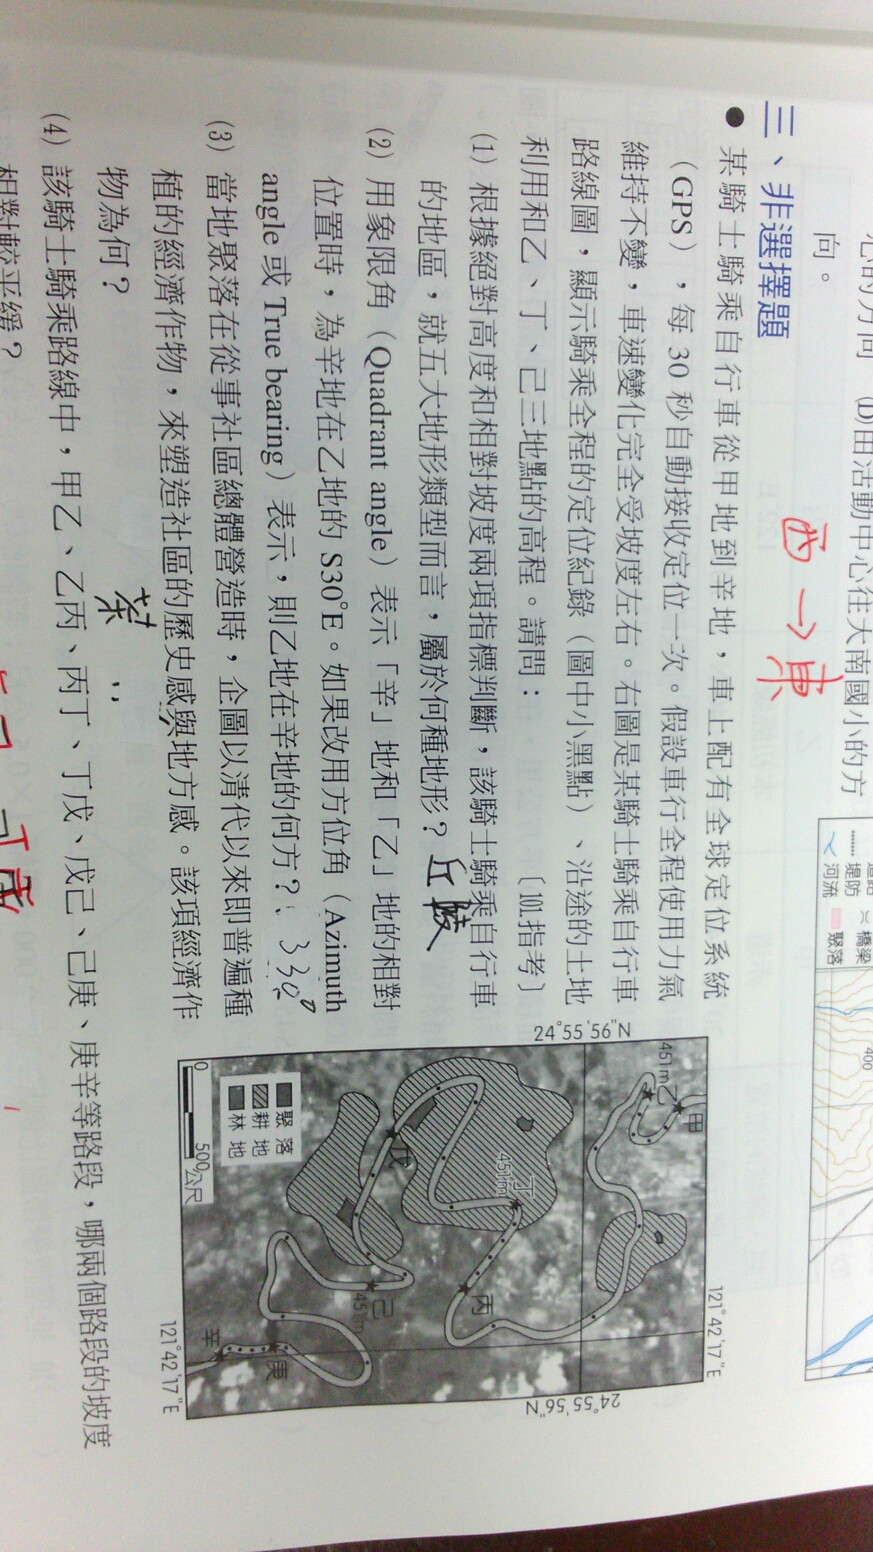 心的方向　(D)由活動中心往大南國小的方
向。
西→東
道路
堤防 橋梁
河流 聚落
400
三、非選擇題
●某騎士騎乘自行車從甲地到辛地，車上配有全球定位系統
（GPS），每 30 秒自動接收定位一次。假設車行全程使用力氣
維持不變，車速變化完全受坡度左右。右圖是某騎士騎乘自行車
路線圖，顯示騎乘全程的定位紀錄（圖中小黑點）、沿途的土地
利用和乙、丁、己三地點的高程。請問： 〔101.指考〕
(1) 根據絕對高度和相對坡度兩項指標判斷，該騎士騎乘自行車
的地區，就五大地形類型而言，屬於何種地形？丘陵
(2) 用象限角（Quadrant angle）表示「辛」地和「乙」地的相對
位置時，為辛地在乙地的 S30°E。如果改用方位角（Azimuth
angle 或 True bearing）表示，則乙地在辛地的何方？330°
(3) 當地聚落在從事社區總體營造時，企圖以清代以來即普遍種
植的經濟作物，來塑造社區的歷史感與地方感。該項經濟作
物為何？
茶
(4) 該騎士騎乘路線中，甲乙、乙丙、丙丁、丁戊、戊己、己庚、庚辛等路段，哪兩個路段的坡度
相對較平緩？
121°42'17"E
24°55'56"N
24°55'56"N
甲
乙
451m
丙
丁
451m
戊
己
451m
庚
辛
聚落
耕地
林地
0 500公尺
121°42'17"E